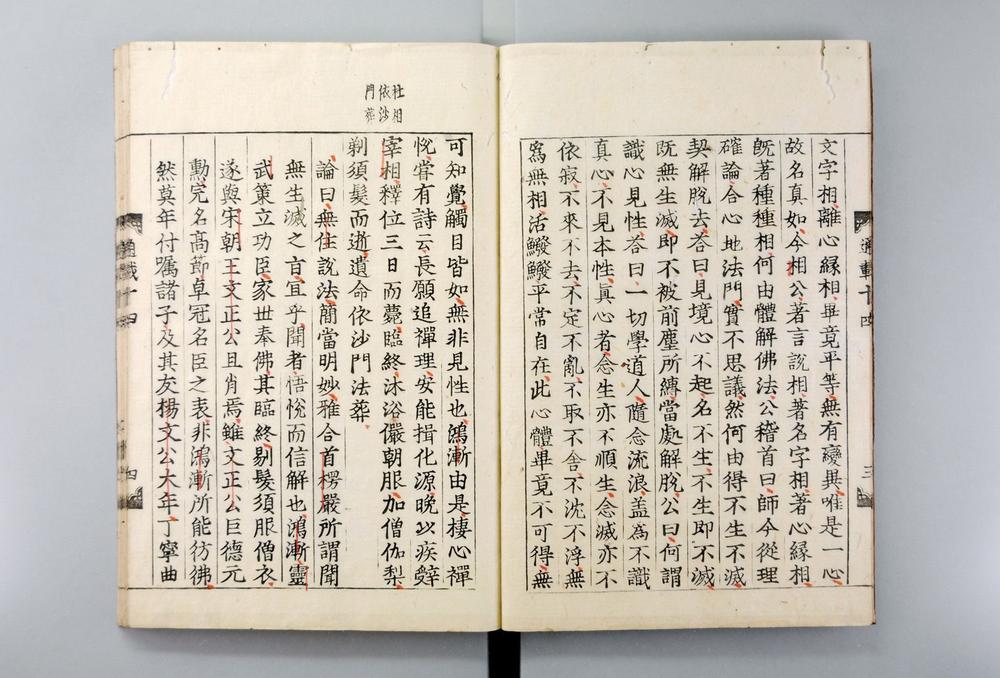 文字相離心緣相畢竟平等無有變異唯是一心
故名真如今相公著言說相著名字相著心緣相
既著種種相何由體解佛法公稽首曰師今從理
確論合心地法門實不思議然何由得不生不滅
契解脫去荅曰見境心不起名不生不生即不滅
既無生滅即不被前塵所縛當處解脫公曰何謂
識心見性荅曰一切學道人隨念流浪盖為不識
真心不見本性真心者念生亦不順生念滅亦不
依寂不來不去不定不亂不取不舍不沈不浮無
為無相活鱍鱍平常自在此心體畢竟不可得無
通載十四 三
杜相
依沙
門葬
可知覺觸目皆如無非見性也鴻漸由是棲心禪
悅嘗有詩云長願追禪理安能揖化源晚以疾辤
宰相釋位三日而薨臨終沐浴儼朝服加僧伽梨
剃須髮而逝遺命依沙門法葬
論曰無住說法簡當明妙雅合首楞嚴所謂聞
無生滅之旨宜乎聞者悟悅而信解也鴻漸靈
武策立功臣家世奉佛其臨終剔髮須服僧衣
遂與宋朝王文正公且肖焉雖文正公巨德元
勳完名高節卓冠名臣之表非鴻漸所能彷彿
然莫年付囑諸子及其友楊文公大年丁寧曲
通載十四 四